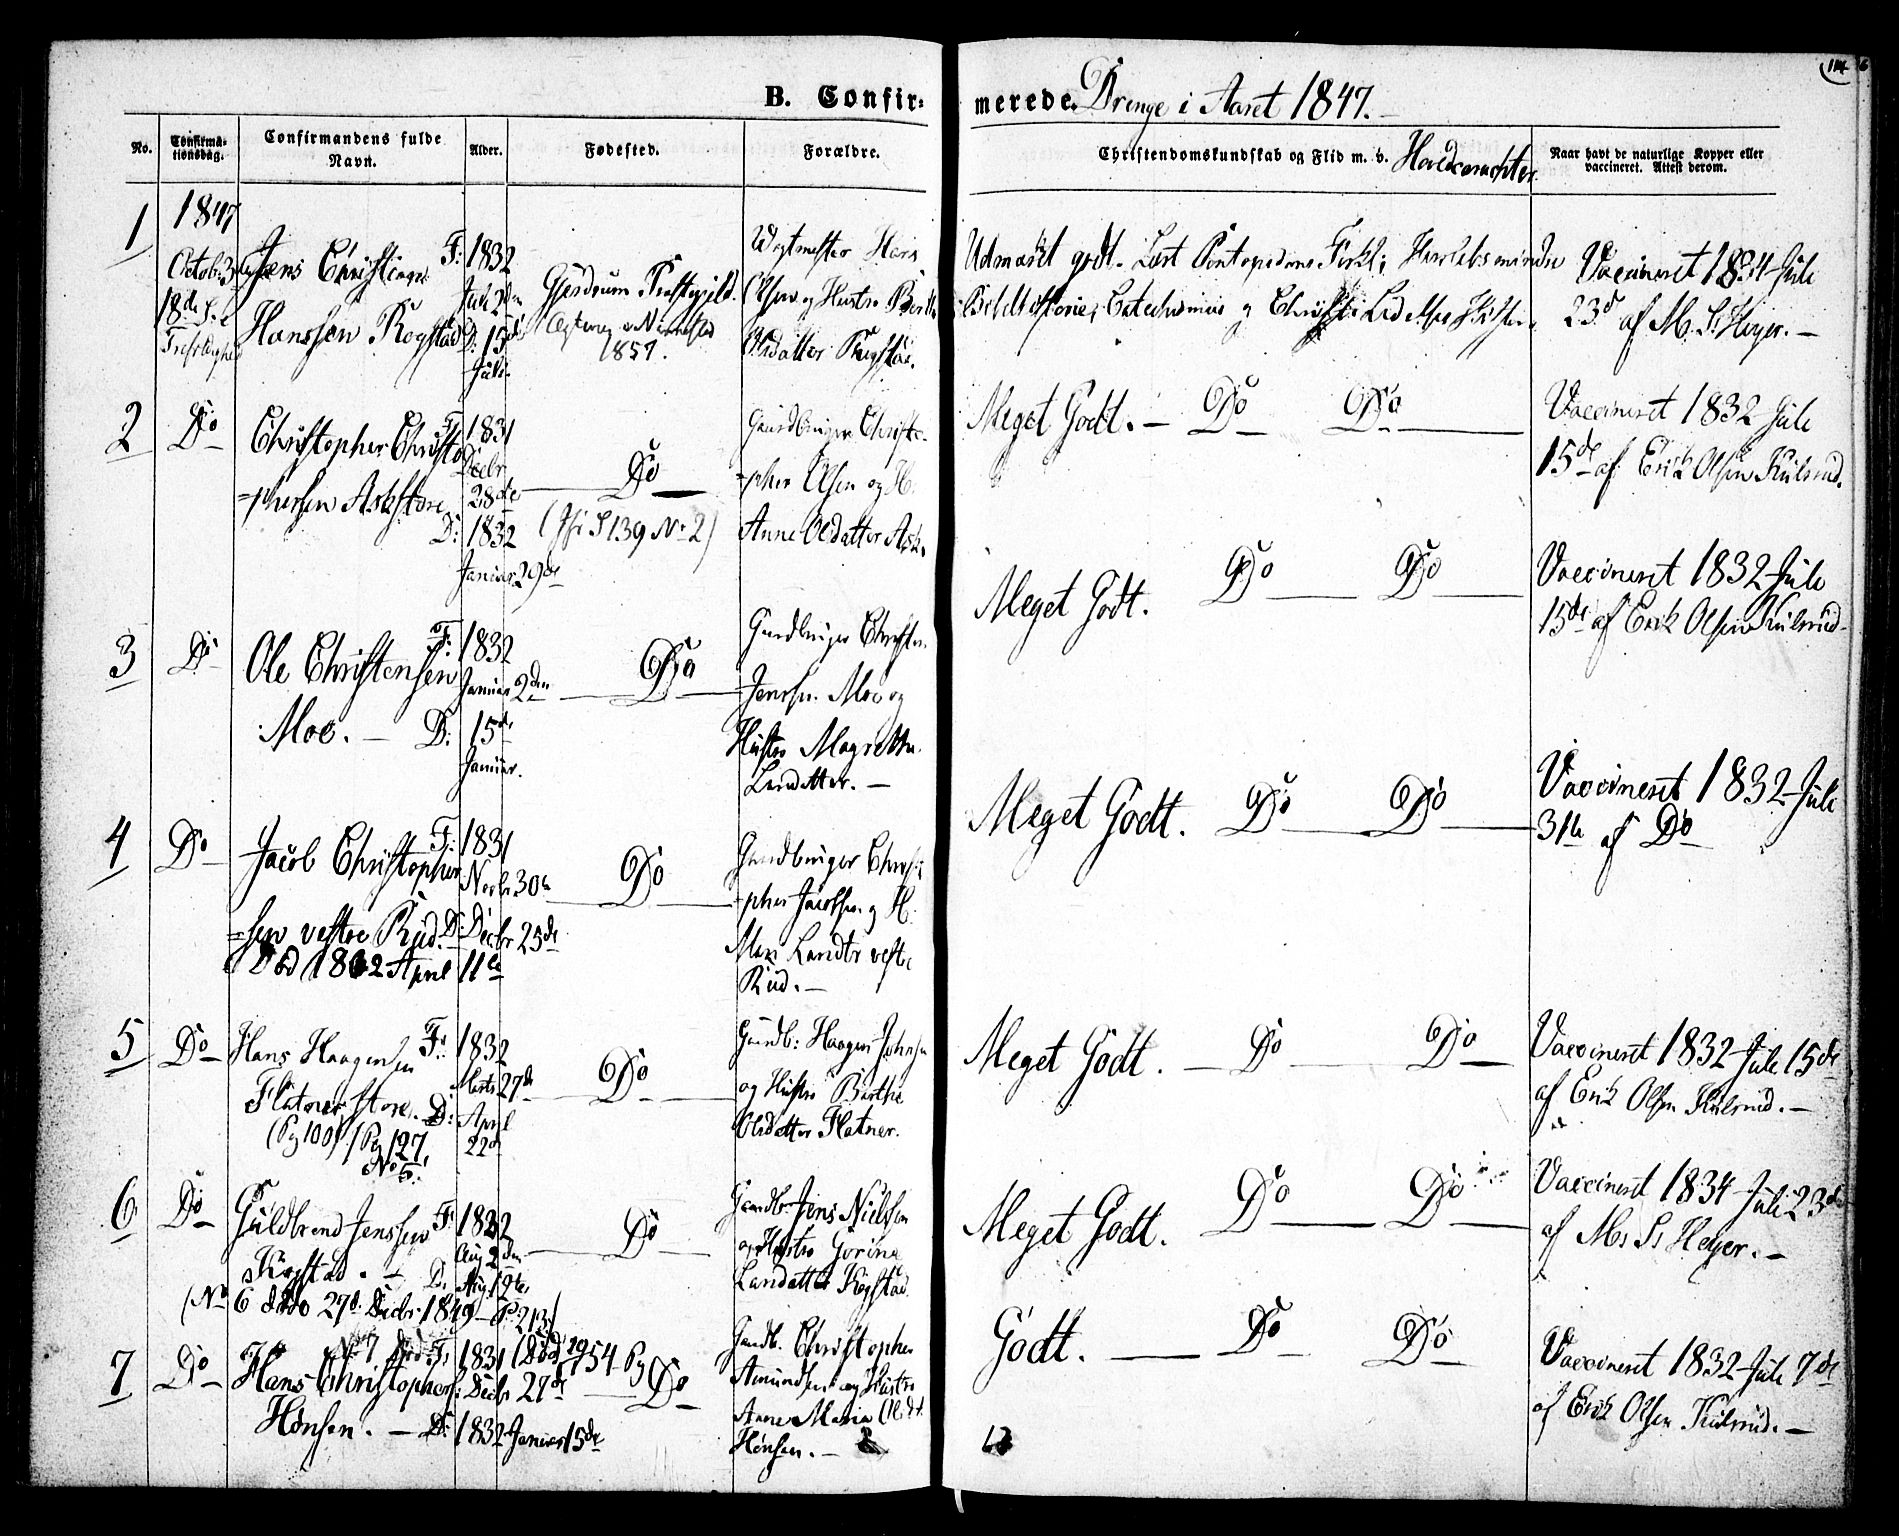 B. Confir-
merede Drenge i Aaret 1847.
114
No.
Confirmationsdag.
Confirmandens fulde Navn.
Alder.
Fødested.
Forældre.
Christendomskundskab og Flid m. v. Hovedcarachter
Naar havt de naturlige Kopper eller vaccineret. Attest derom.
1
1847
Octob: 3
18de S. e
Jens Christian
Hanssen Rogstad
F: 1832
Juli 2den
D: 15de
Juli.
Gjerdrum Præstegjeld.
1857.
Hans
Olsen og Hustro Berthe
Olsdatter Rogstad.
Udmærket godt. Læst
Bibelhistorie, Catechismus og Christi Lidelses Historie
Vaccineret 1834 Juli
23d af M. S. Heyer. —
2
Do
Christopher Christo
=phersen Askstore
F: 1831
Decbr
28de
D: 1832
Januar 29de
Do
( S 139 No 2)
Gaardbruger Christo-
=pher Olsen og H.
Anne Olsdatter Ask.
Meget Godt. — Do Do
Vaccineret 1832 Juli
15de af Erik Olsen Kulsrud.
3
Do
Ole Christensen
Moe. —
F: 1832
Januar 2den
D: 15de
Januar.
Do
Gaardbruger Christen
Jenssen Moe og
Hustro Magrethe
Larsdatter. —
Meget Godt. Do Do
Vaccineret 1832 Juli
15de af Erik Olsen Kulsrud
4
Do
Jacob Christopher
=sen vestre Rud.
Død 1862 April 11te
F: 1831
Novbr 30te
D: Decbr 25de
Do
Gaardbruger Christo
=pher Jacobsen og H.
Mari Larsdtr vestre
Rud. —
Meget Godt. Do Do
Vaccineret 1832 Juli
31te af Do
5
Do
Hans Haagensen
Flatner store.
(Pg 100) (Pg 127
No 5.
F: 1832
Marts 27de
D: April
22de
Do
Gaardb: Haagen Johnsen
og Hustro Berthe
Olsdatter Flatner.
Meget Godt. — Do Do
Vaccineret 1832 Juli 15de
af Erik Olsen Kulsrud. —
6
Do
Guldbrand Jenssen
Rogstad. —
F: 1832
Aug 2den
D: Aug. 19de
(No 6 døde 27d: Decbr: 1849 - P. 213)
Do
Gaardb. Jens Nielssen
og Hustro Gorine
Larsdatter Rogstad
Meget Godt. Do Do
Vaccineret 1834 Juli 23de
af M. S. Heyer. —
7
Do
No 7
Hans Christophers:
Hønsen. —
F: 1831
Decbr 27de
D: 1832 Januar 15de
(Død 1954 Pg
Do
Gaardb. Christopher
Amundsen og Hustro
Anne Maria Olsdt.
Hønsen. —
Godt. — Do Do
Vaccineret 1832 Juli 7de
af Erik Olsen Kulsrud. —